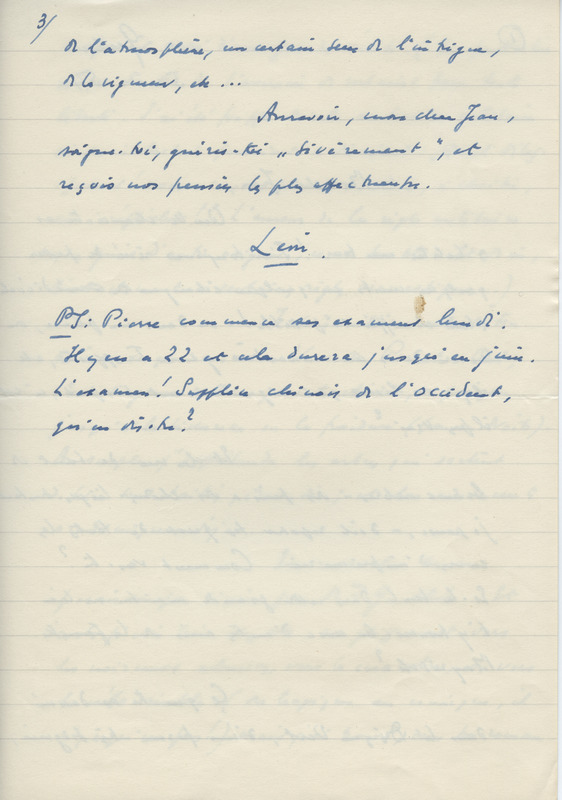 3/
de l'atmosphère, un certain sens de l'intrigue,
de la vigueur, etc...
Aurevoir, mon cher Jean,
soigne-toi, guéris-toi „ sévèrement ", et
reçois nos pensées les plus affectueuses.
PS: Pierre commence ses examens lundi.
Il y en a 22 et cela durera jusqu'en juin.
L'examen! Supplice chinois de l'Occident,
qu'en dis-tu?